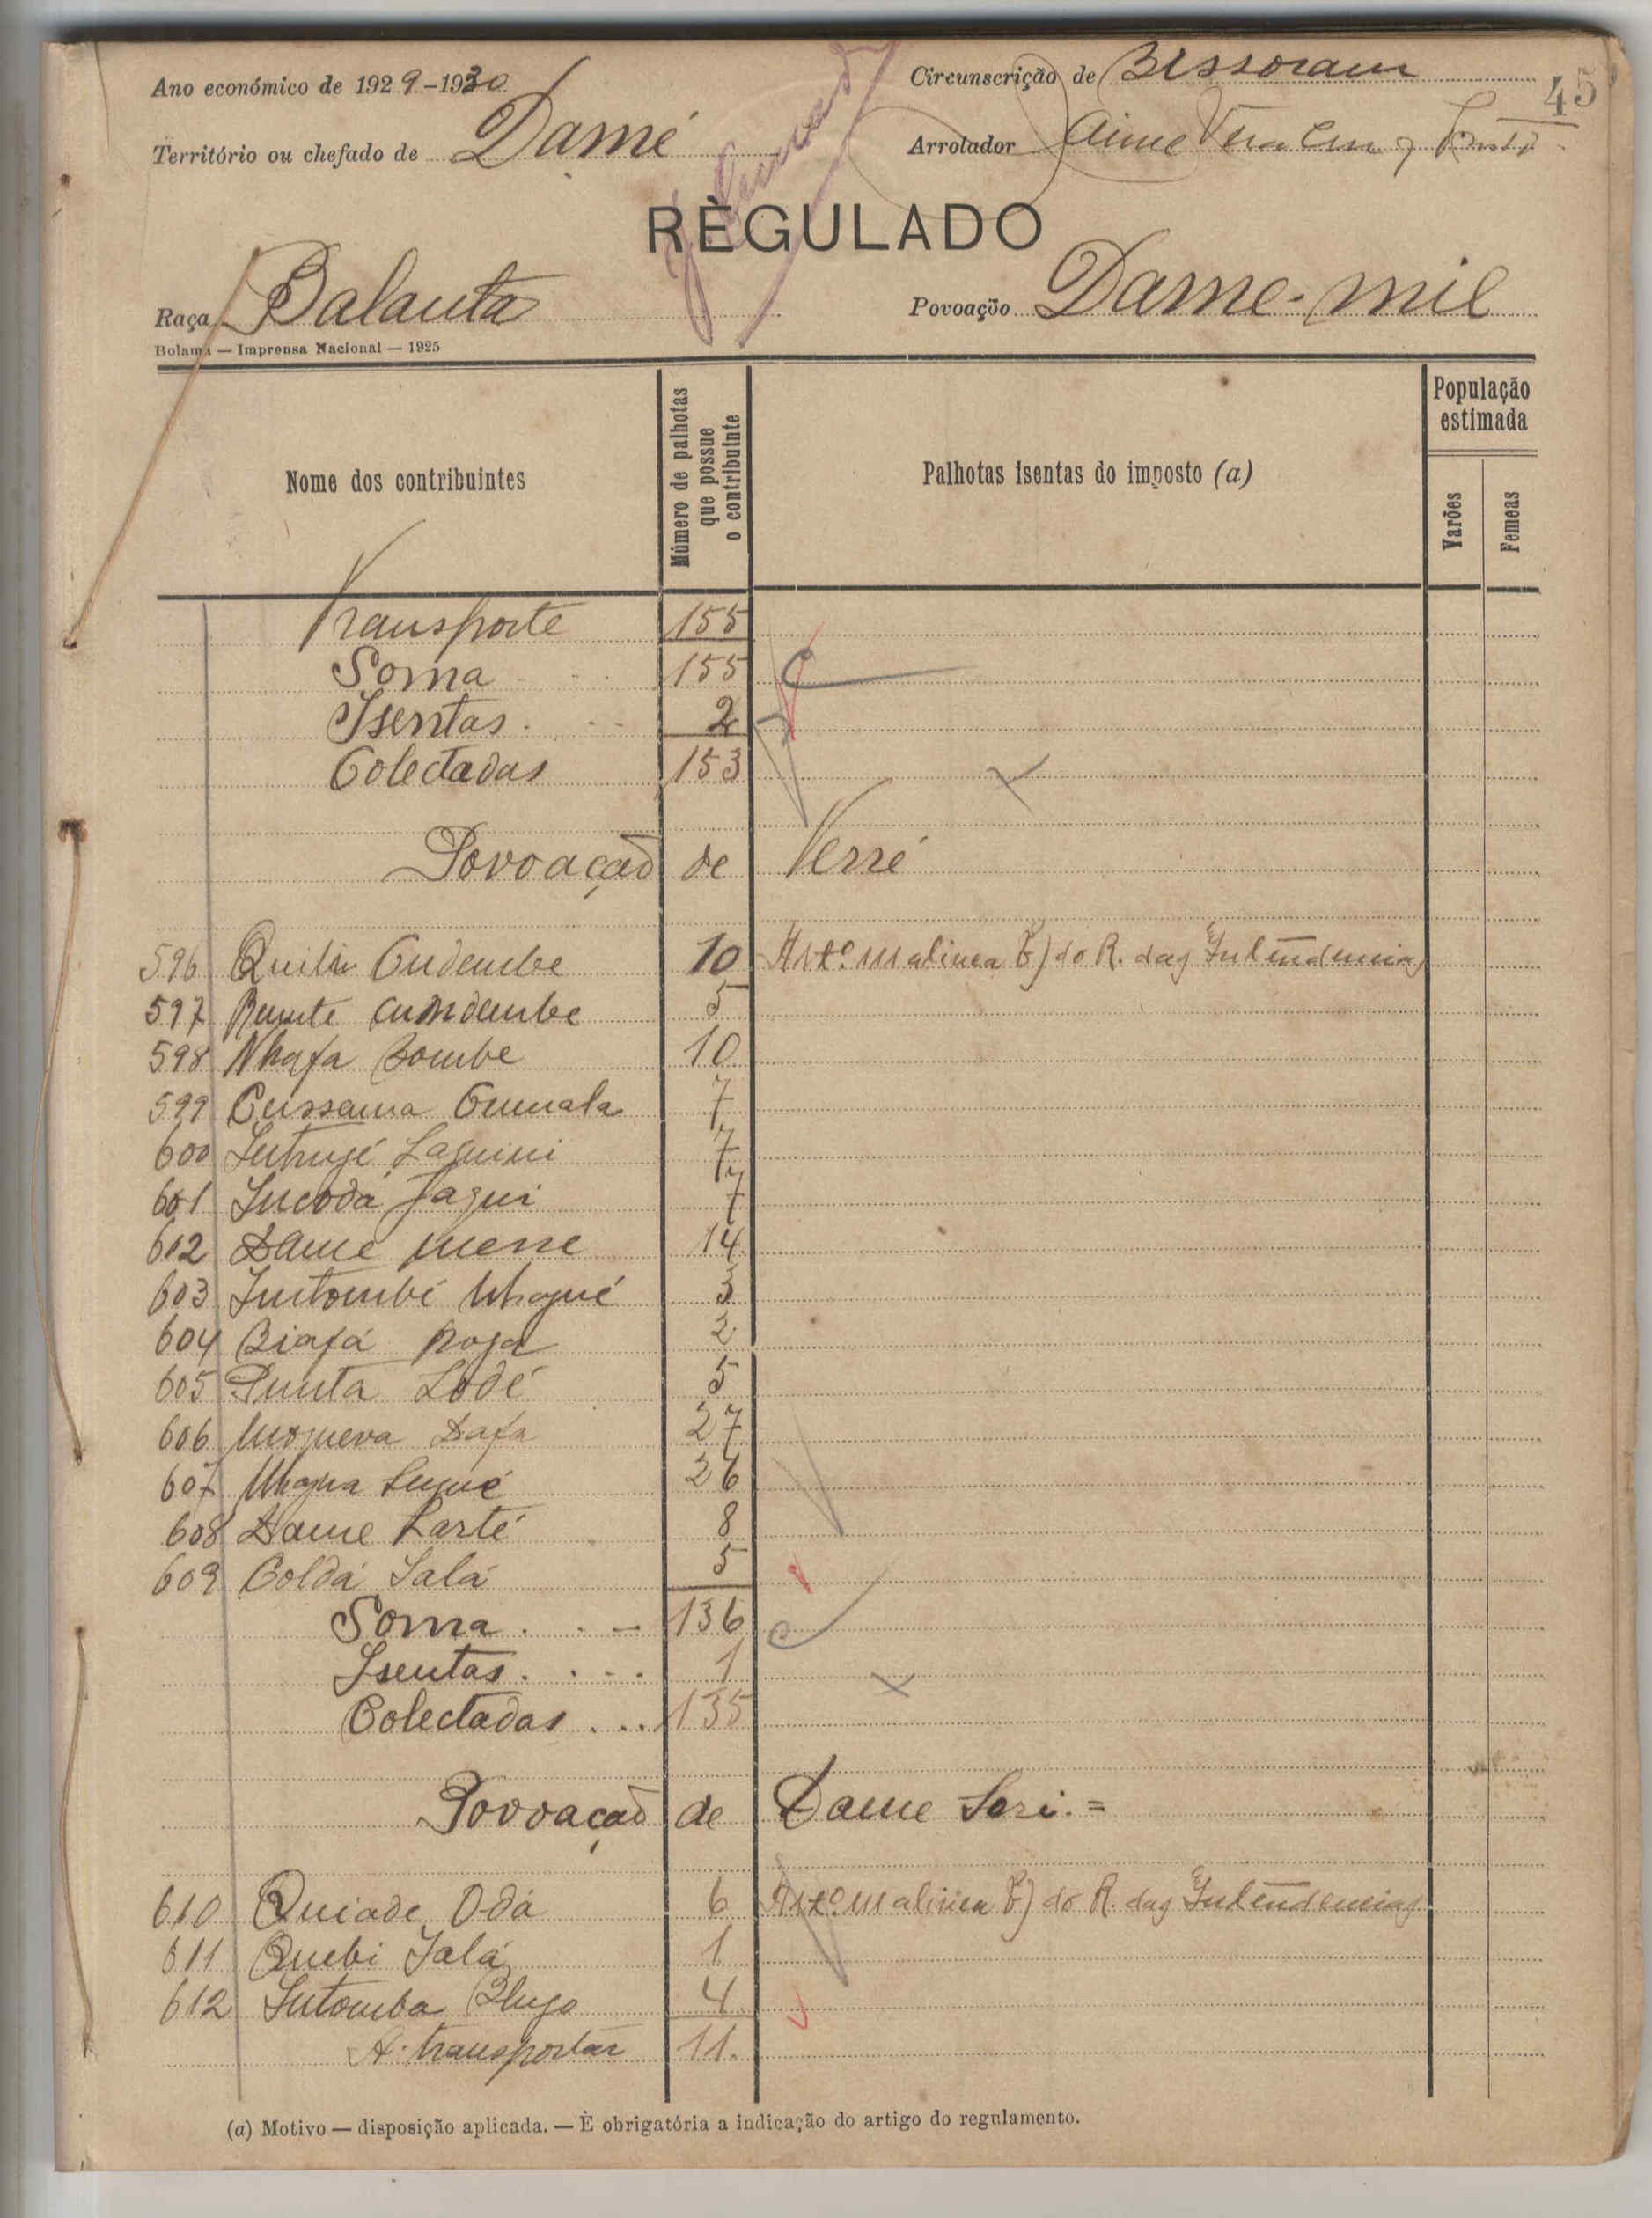 Ano económico de 1929-1930
Circunscrição de Bissoram
45
Território ou chefado de Damé
Arrolador Jaime
RÈGULADO
Raça Balanta
Povoação Dame-mil
Bolama — Imprensa Nacional — 1925
Nome dos contribuintes
Número de palhotas que possue o contribuinte
Palhotas isentas do imposto (a)
População estimada
Varões
Femeas
Transporte 155
Soma 155
Isentas 2
Colectadas 153
Povoação de Verré
596 Quilin Cudembe 10 Artº alinea b) do R. das Intendencias
597 Cumdembe 5
598 Nhafa Bombe 10
599 Cussama Cumala 7
600 7
601 Incodá Jagui 7
602 Dame 14
603 Intombé Nhagué 3
604 Biafá 2
605 Punta Lodé 5
606 Dafa 27
607 26
608 Dame Larté 8
609 Coldá Salá 5
Soma . . - 136
Isentas . . - . 1
Colectadas . . . 135
Povoação de Dame Sori. =
610 Quiade Odá 6 Artº alinea b) do R. das Intendencias
611 Quebi Jalá 1
612 Intomba 4
A transportar 11.
(a) Motivo — disposição aplicada. — È obrigatória a indicação do artigo do regulamento.